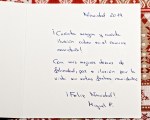 Navidad 2019
¡Cuánta magia y cuánta
ilusión caben en el
Con mis mejores deseos de
felicidad, paz e ilusión por la
vida en estas fiestas navideñas
¡Feliz Navidad!
Miguel P.